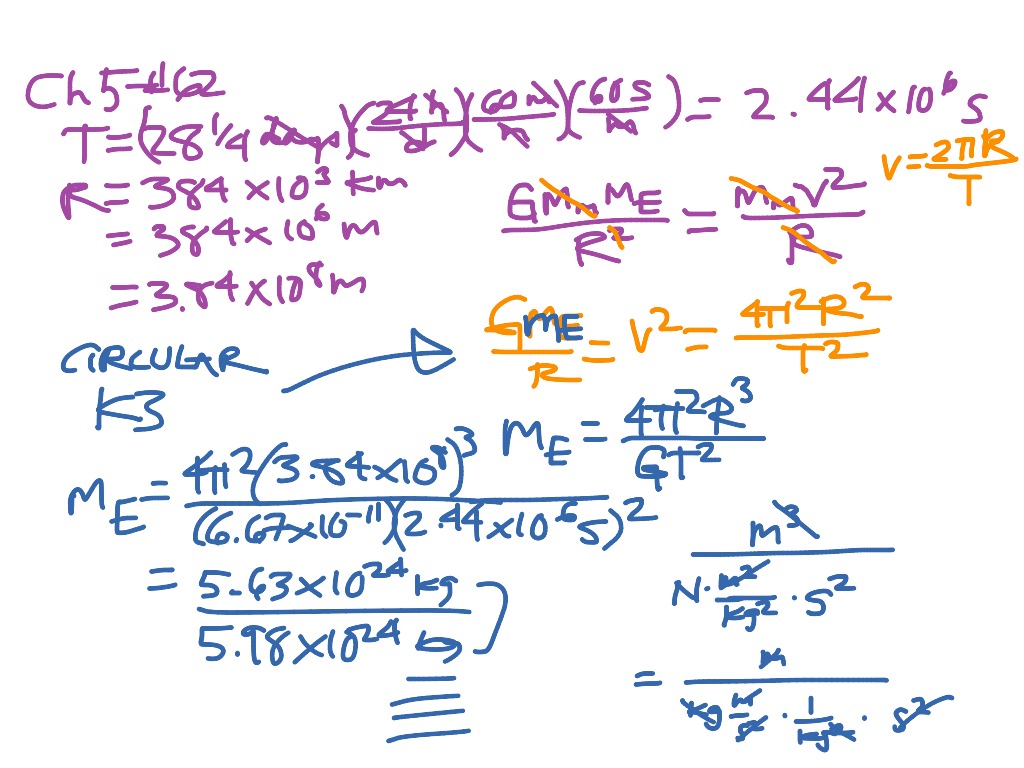 Ch 5-#62
T = (28 1/4 days)(24 h/d)(60 m/h)(60 s/m) = 2.44 × 10^6 s
R = 384 × 10^3 km
= 384 × 10^6 m
= 3.84 × 10^8 m
G M_m M_E / R^2 = M_m V^2 / R
V = 2πR / T
G M_E / R = V^2 = 4π^2 R^2 / T^2
CIRCULAR
K3
M_E = 4π^2 R^3 / G T^2
M_E = 4π^2 (3.84 × 10^8)^3 / (6.67 × 10^-11)(2.44 × 10^6 s)^2
= 5.63 × 10^24 kg
5.98 × 10^24 kg
m^3 / N · m^2/kg^2 · s^2
= m / kg m/s^2 · 1/kg^2 · s^2